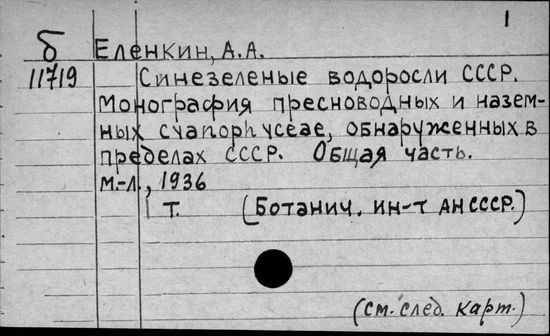 1
б Еленкин, А.А.
11719 Синезеленые водоросли СССР.
Монография пресноводных и назем-
ных cyanophyceae, обнаруженных в
пределах СССР. Общая часть.
М.-Л., 1936
1 т. (Ботанич. ин-т АН СССР.)
(см. след. карт.)